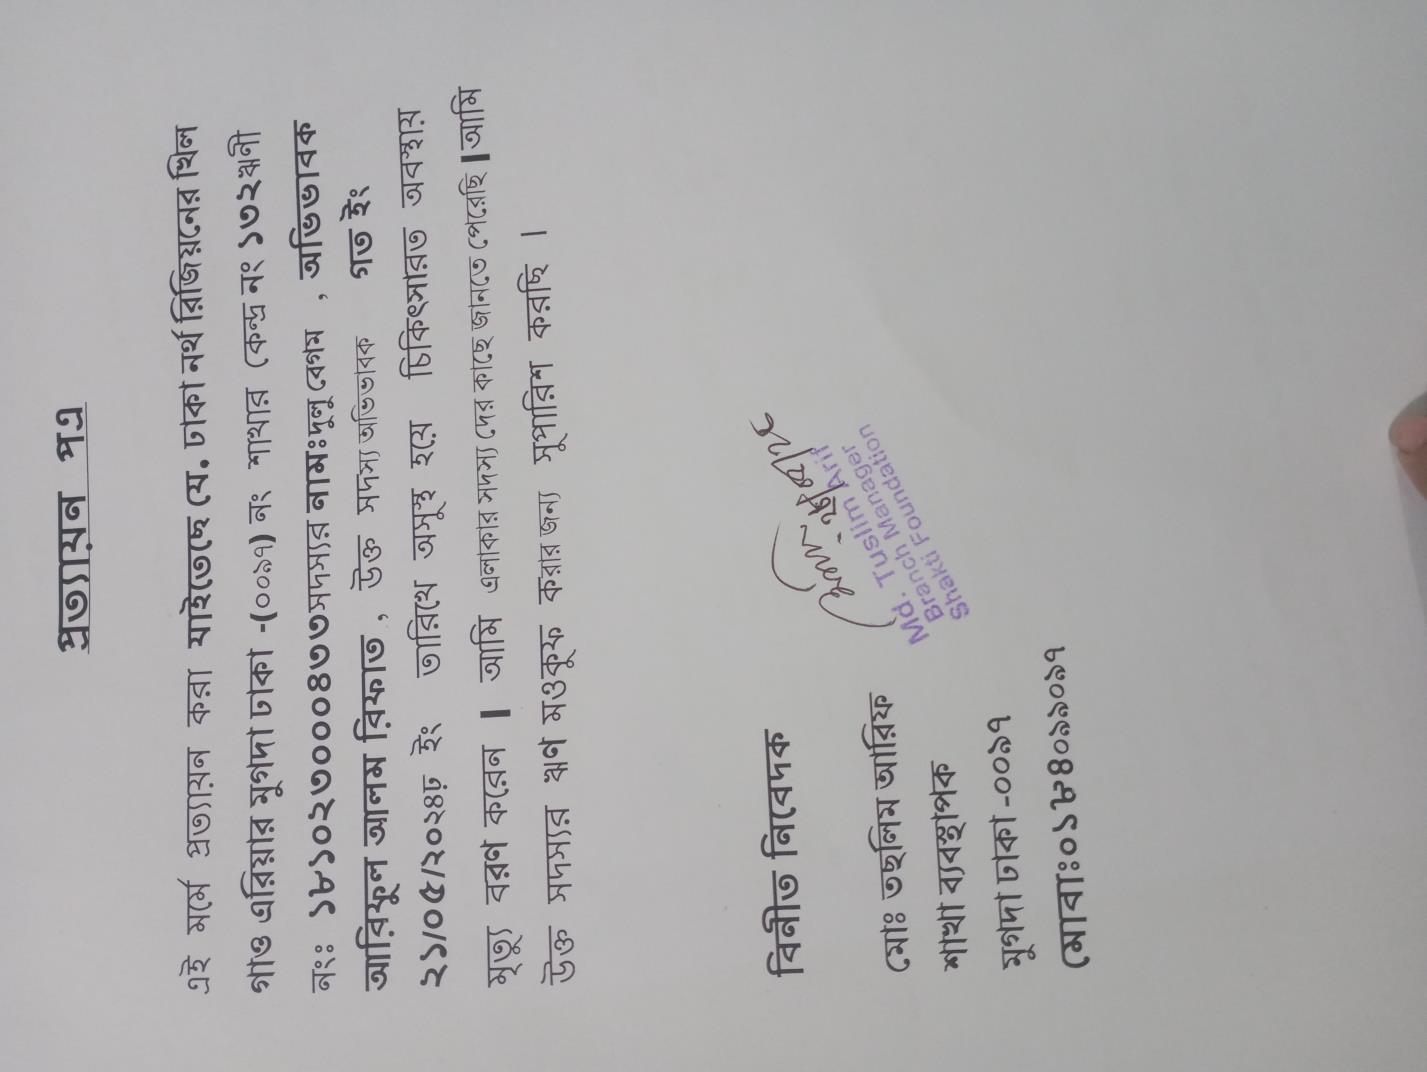 প্রত্যায়ন পত্র
এই মর্মে প্রত্যায়ন করা যাইতেছে যে, ঢাকা নর্থ রিজিয়নের খিল
গাও এরিয়ার মুগদা ঢাকা -(০০১৭) নং শাখার কেন্দ্র নং ১৩২ঋনী
নংঃ ১৮১০২৩০০০৪৩৩সদস্যর নামঃদুলু বেগম , অভিভাবক
আরিফুল আলম রিফাত , উক্ত সদস্য অভিভাবক গত ইং
২১/০৫/২০২৪ঢ় ইং তারিখে অসুস্থ হয়ে চিকিৎসারত অবস্থায়
মৃত্যু বরণ করেন | আমি এলাকার সদস্য দের কাছে জানতে পেরেছি |আমি
উক্ত সদস্যর ঋণ মওকুফ করার জন্য সুপারিশ করছি ।
বিনীত নিবেদক
Md. Tuslim Arif
Branch Manager
Shakti Foundation
মোঃ তছলিম আরিফ
শাখা ব্যবস্থাপক
মুগদা ঢাকা -০০১৭
মোবাঃ০১৮৪০৯৯০৯৭